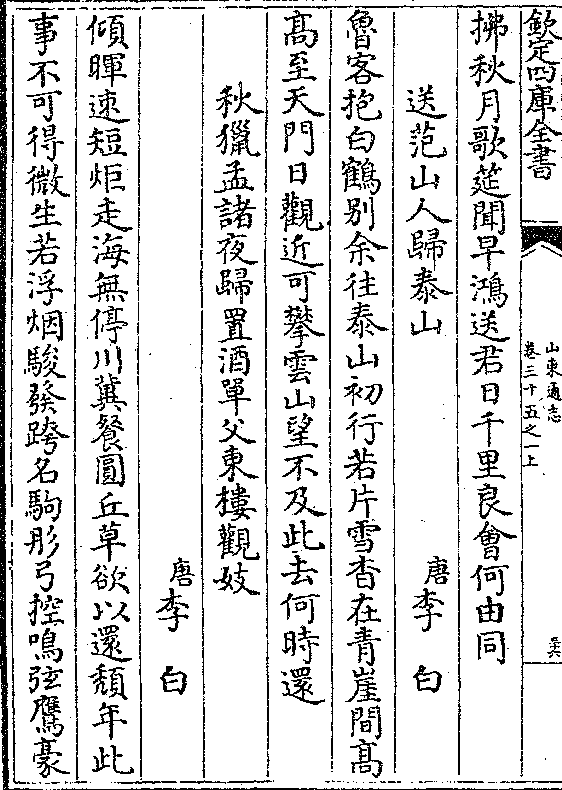 欽定四庫全書
山東通志
卷三十五之一上
拂秋月歌筵聞早鴻送君日千里良會何由同
送范山人歸泰山
唐李白
魯客抱白鶴别余往泰山初行若片雪杳在青崖間高
高至天門日觀近可攀雲山望不及此去何時還
秋獵孟諸夜歸置酒單父東樓觀妓
唐李白
傾暉速短炬走海無停川冀餐圓丘草欲以還頹年此
事不可得微生若浮烟駿發跨名駒彫弓控鳴弦鷹豪